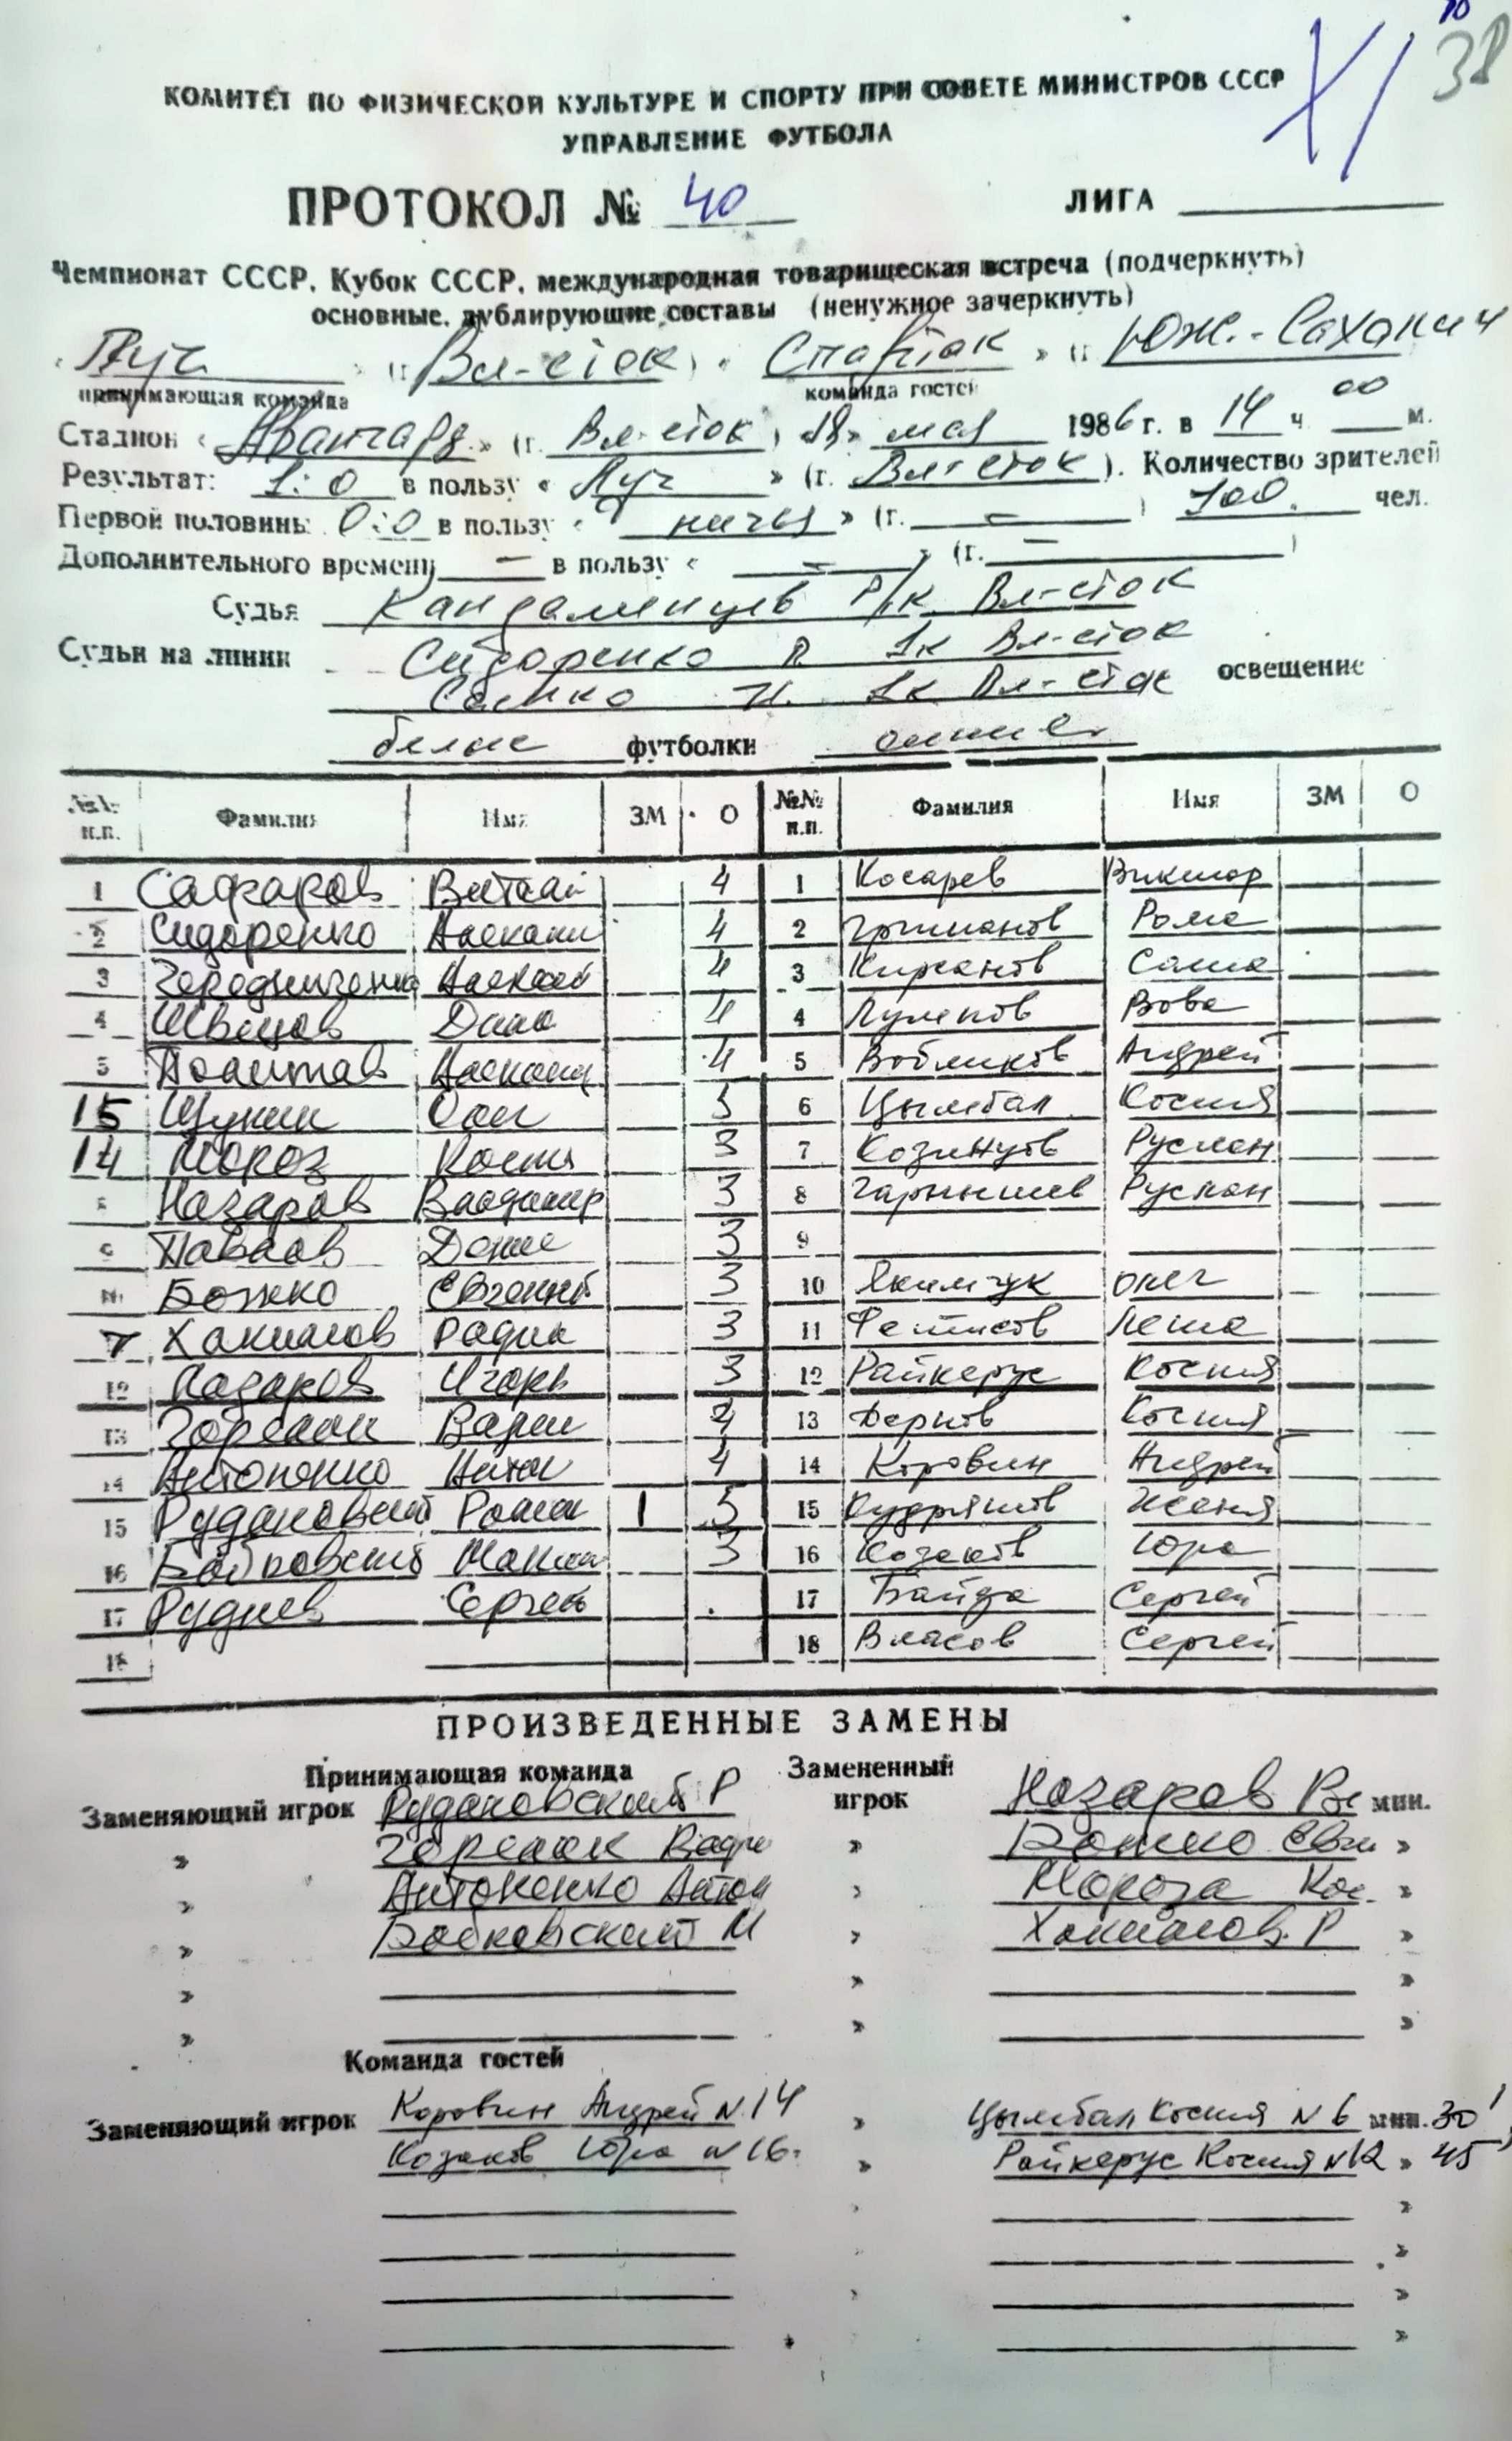 38
КОМИТЕТ ПО ФИЗИЧЕСКОЙ КУЛЬТУРЕ И СПОРТУ ПРИ СОВЕТЕ МИНИСТРОВ СССР
УПРАВЛЕНИЕ ФУТБОЛА
ПРОТОКОЛ № 40 ЛИГА
Чемпионат СССР, Кубок СССР, международная товарищеская встреча (подчеркнуть)
основные, дублирующие составы (ненужное зачеркнуть)
Луч (г. Вл-сток) « Спартак » (г. Юж.-Сахалин
принимающая команда команда гостей
Стадион « Авангард » (г. Вл-сток) 18 » мая 1986 г. в 14 ч 00 м.
Результат: 1:0 в пользу « Луч » (г. Вл-сток). Количество зрителей
Первой половины: 0:0 в пользу « ничья » (г. – ) 100. чел.
Дополнительного времени – в пользу « – » (г. – )
Судья Кандаминцев Р/к Вл-сток
Судьи на линии Сидоренко В 1к Вл-сток
Саенко Н. 1к Вл-сток освещение
белые футболки синие
№№ п.п. Фамилия Имя ЗМ О №№ п.п. Фамилия Имя ЗМ О
1 Сафаров Виталий 4 1 Косарев Виктор
2 Сидоренко Александр 4 2 Рома
3 Чередниченко Алексей 4 3 Кирсанов Саша
4 Швецов Дима 4 4 Лупенов Вова
5 Полетаев 4 5 Вобликов Андрей
15 Щукин Олег 3 6 Цымбал Костя
14 Мороз Костя 3 7 Козинцов Руслан
8 Назаров Владимир 3 8 Чарнышев Руслан
9 Павлов Денис 3 9
10 Божко Евгений 3 10 Якимчук Олег
7 Хакимов Радик 3 11 Фетисов Леша
12 Назаров Игорь 3 12 Райкерус Костя
13 Горелик Вадим 4 13 Дернов Костя
14 Антоненко Антон 4 14 Коровин Андрей
15 Рудановский Роман 1 5 15 Кудряшов Женя
16 Бобковский Максим 3 16 Козаков Юра
17 Руднев Сергей 17 Байда Сергей
18 18 Власов Сергей
ПРОИЗВЕДЕННЫЕ ЗАМЕНЫ
Принимающая команда Замененный
Заменяющий игрок Рудановский Р игрок Назаров Вл мин.
» Горелик Вадим » Божко Евг »
» Антоненко Антон » Мороза Кос. »
» Бобковский М » Хакимов Р »
» » »
» » »
Команда гостей
Заменяющий игрок Коровин Андрей N 14 » Цымбал Костя N 6 мин. 30'
Козаков Юра N 16. » Райкерус Костя N 12 » 45'
» »
» »
» »
»